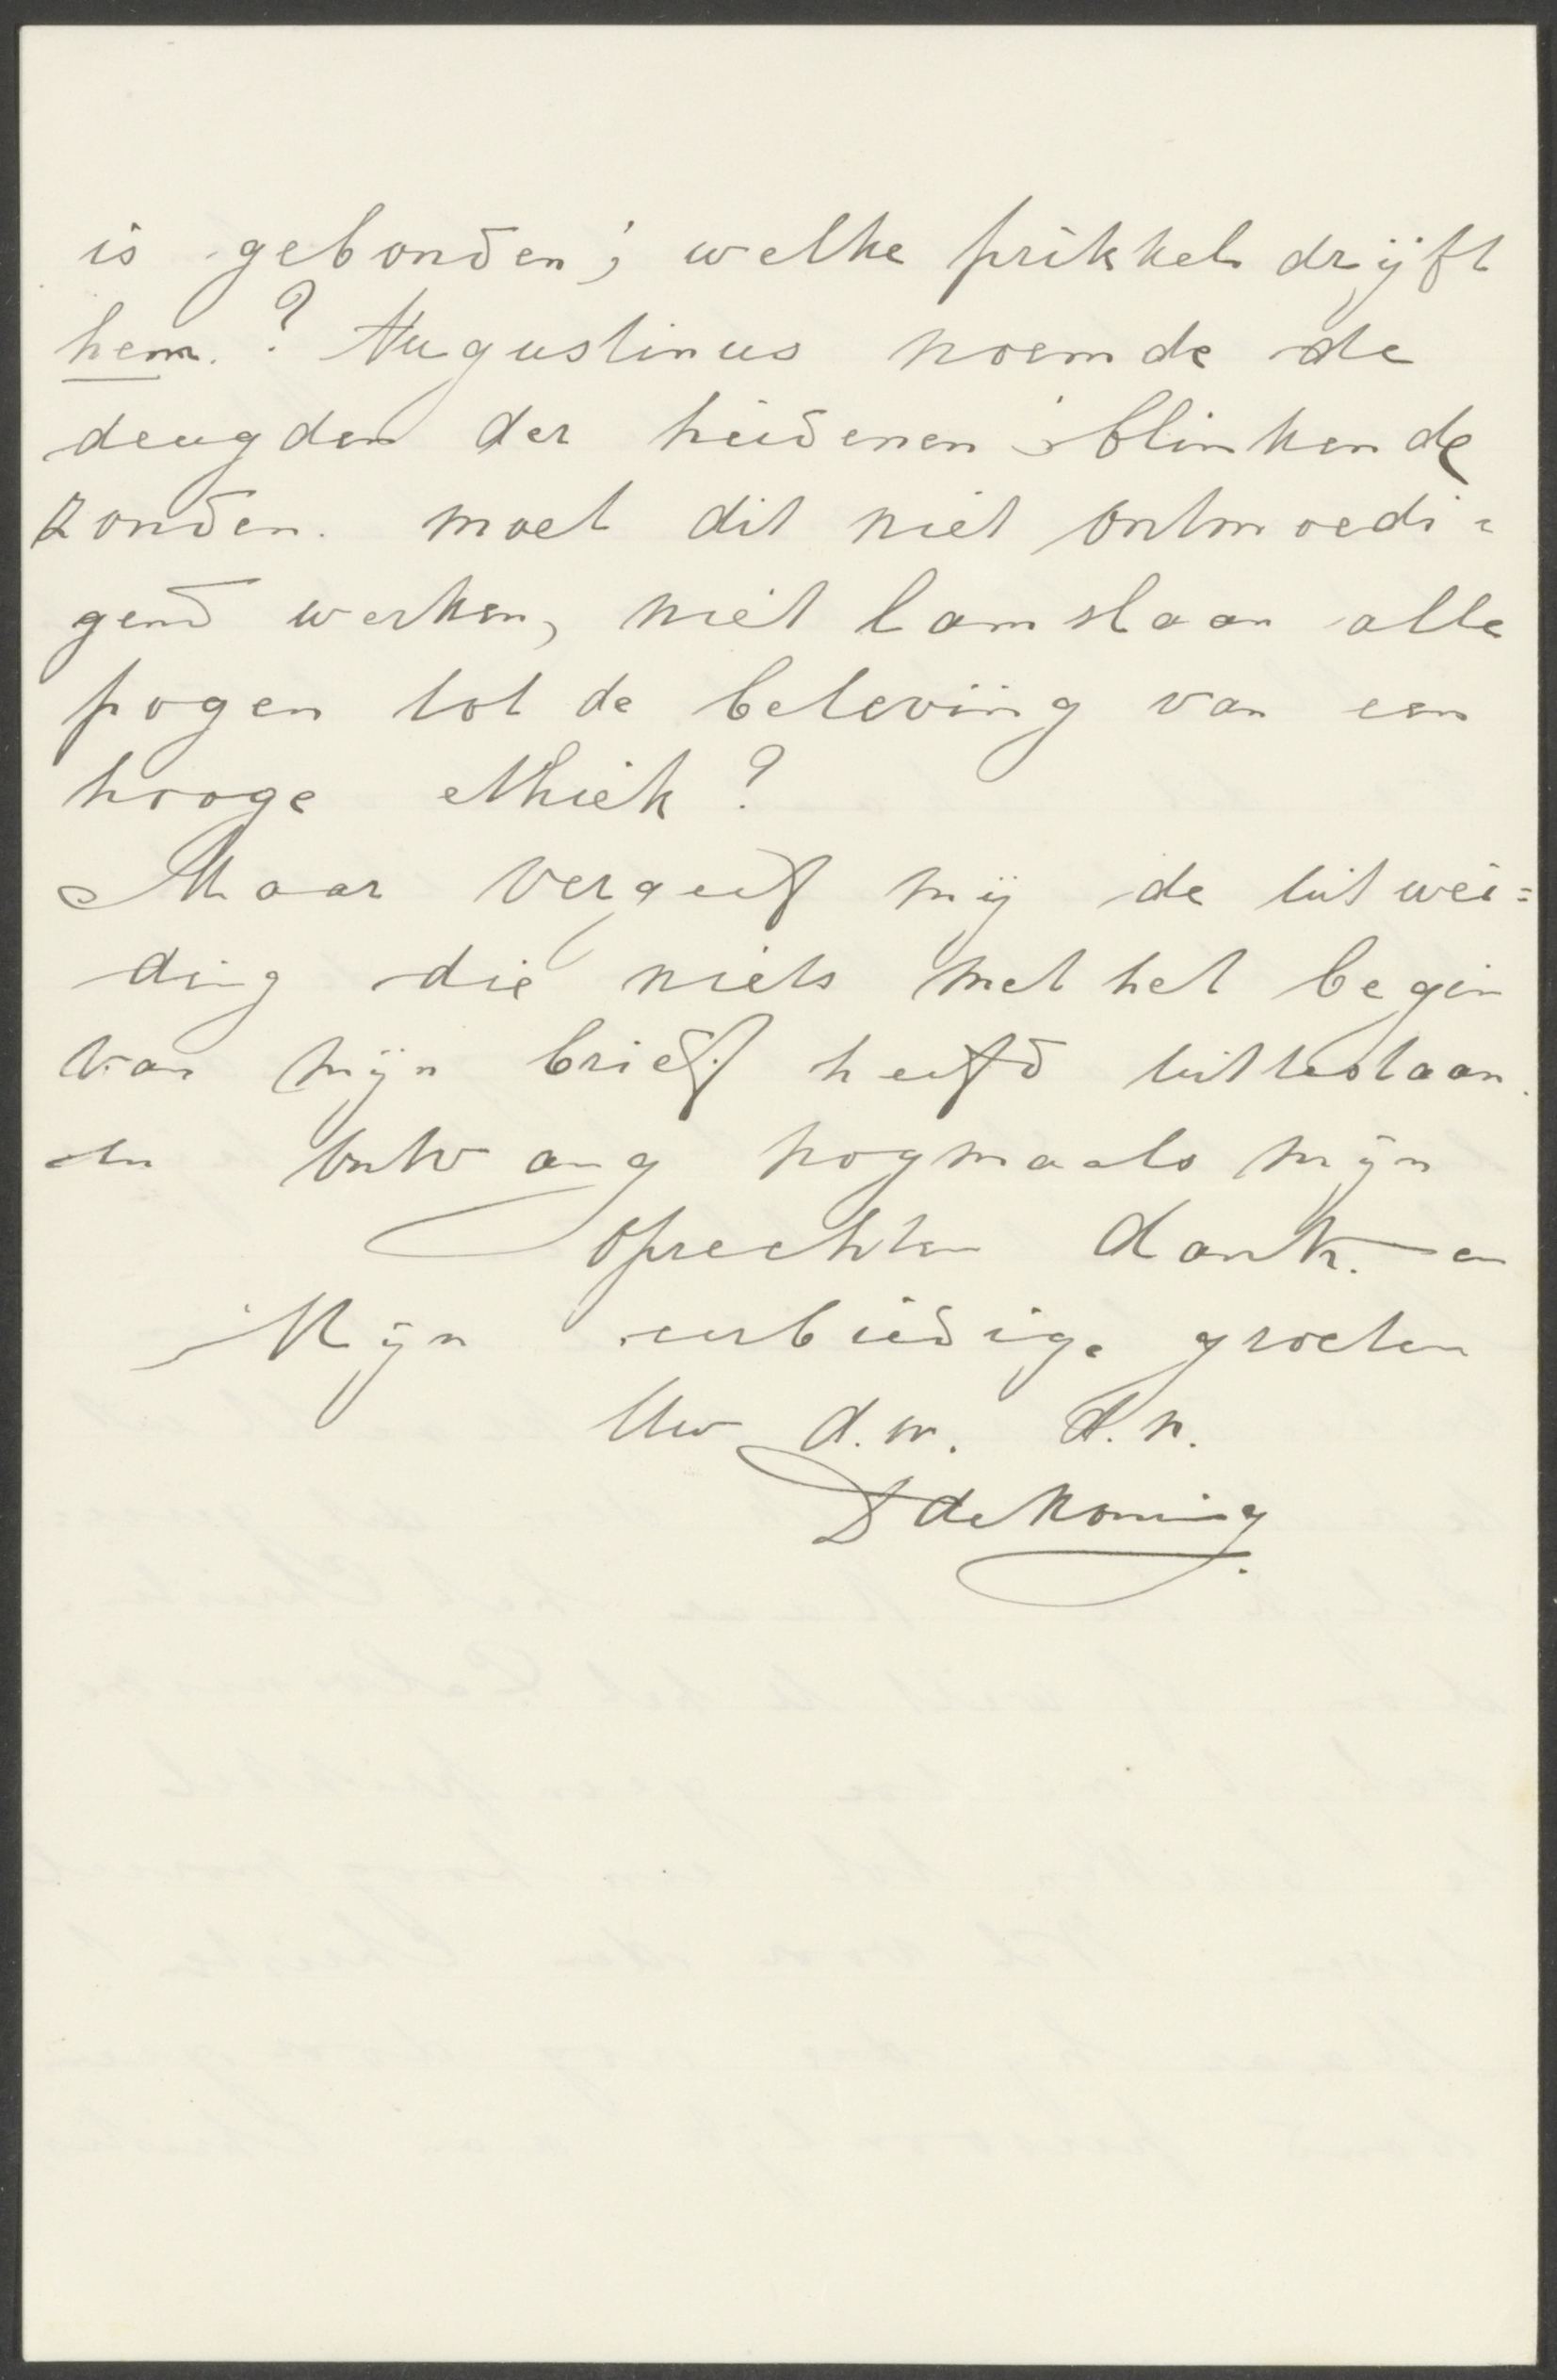 is gebonden; welke prikkel drijft
hem.? Augustinus noemde de
deugden der heidenen blinkende
zonden. moet dit niet ontmoedi=
gend werken, niet lamslaan alle
pogen tot de beleving van een
hooge ethiek?
Maar vergeef mij de uitwei=
ding die niets met het begin
van mijn brief heefd uittestaan.
en ontvang nogmaals mijn
oprechten dank. en
Mijn eerbiedige groeten
Uw d.w. d.n.
D de Koning.